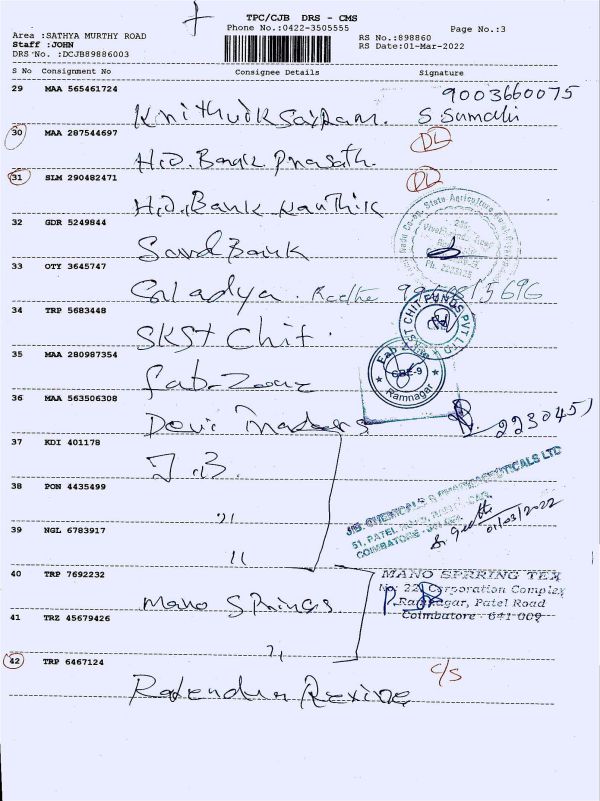 TPC/CJB DRS - CMS
Phone No.:0422-3505555
Page No.:3
Area :SATHYA MURTHY ROAD
RS No.:898860
Staff :JOHN
RS Date:01-Mar-2022
DRS No. :DCJB89886003
S No Consignment No Consignee Details Signature
29 MAA 565461724
9003660075
S Sumathi
30 MAA 287544697
DL
H.D. Bank Prasath.
31 SLM 290482471
DL
H.D. Bank Karthik
32 GDR 5249844
State Agriculture
Bank
33 OTY 3645747
Radhe
34 TRP 5683448
CHIT FUNDS PVT LTD
SKST Chit.
35 MAA 280987354
Fab
Ramnagar
36 MAA 563506308
Devi Traders
2230451
37 KDI 401178
J.B.
J.B. CHEMICALS & PHARMACEUTICALS LTD
51, PATEL
COIMBATORE
01/03/2022
38 PON 4435499
"
39 NGL 6783917
"
40 TRP 7692232
MANO SPRRING TEX
No: 22, Corporation Complex
Mano Springs
Ramnagar, Patel Road
41 TRZ 45679426
Coimbatore - 641 009
"
42 TRP 6467124
C/S
Rexine